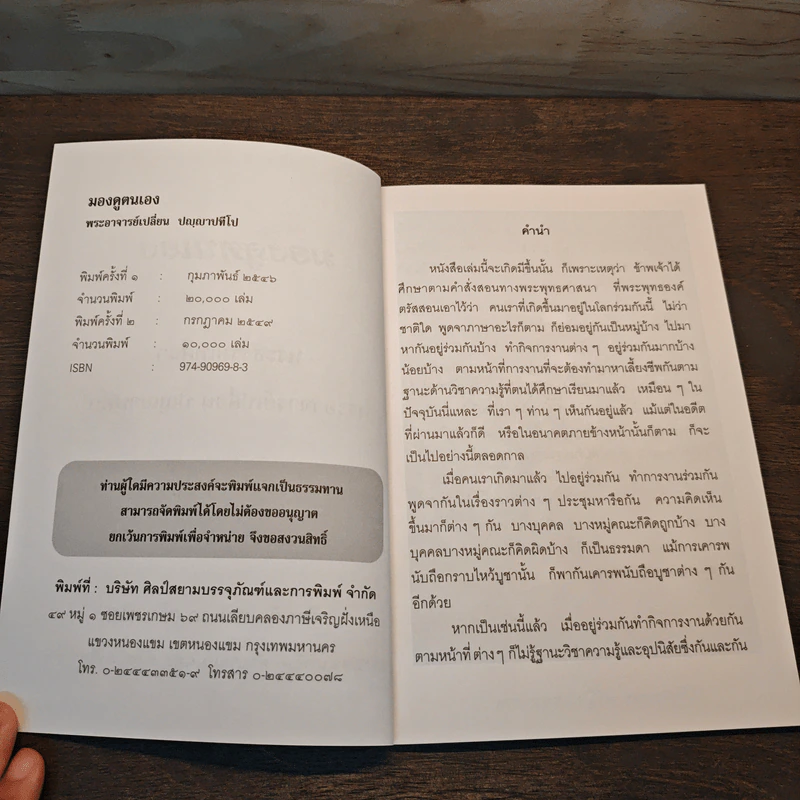 มองดูตนเอง
พระอาจารย์เปลี่ยน ปญฺญาปทีโป
พิมพ์ครั้งที่ ๑ : กุมภาพันธ์ ๒๕๔๖
จำนวนพิมพ์ : ๒๐,๐๐๐ เล่ม
พิมพ์ครั้งที่ ๒ : กรกฎาคม ๒๕๔๙
จำนวนพิมพ์ : ๑๐,๐๐๐ เล่ม
ISBN : 974-90969-8-3
ท่านผู้ใดมีความประสงค์จะพิมพ์แจกเป็นธรรมทาน
สามารถจัดพิมพ์ได้โดยไม่ต้องขออนุญาต
ยกเว้นการพิมพ์เพื่อจำหน่าย จึงขอสงวนสิทธิ์
พิมพ์ที่ : บริษัท ศิลป์สยามบรรจุภัณฑ์และการพิมพ์ จำกัด
๔๙ หมู่ ๑ ซอยเพชรเกษม ๖๙ ถนนเลียบคลองภาษีเจริญฝั่งเหนือ
แขวงหนองแขม เขตหนองแขม กรุงเทพมหานคร
โทร. ๐-๒๔๔๔๓๓๕๑-๙ โทรสาร ๐-๒๔๔๔๐๐๗๘
คำนำ
หนังสือเล่มนี้จะเกิดมีขึ้นนั้น ก็เพราะเหตุว่า ข้าพเจ้าได้
ศึกษาตามคำสั่งสอนทางพระพุทธศาสนา ที่พระพุทธองค์
ตรัสสอนเอาไว้ว่า คนเราที่เกิดขึ้นมาอยู่ในโลกร่วมกันนี้ ไม่ว่า
ชาติใด พูดจาภาษาอะไรก็ตาม ก็ย่อมอยู่กันเป็นหมู่บ้าง ไปมา
หากันอยู่ร่วมกันบ้าง ทำกิจการงานต่าง ๆ อยู่ร่วมกันมากบ้าง
น้อยบ้าง ตามหน้าที่การงานที่จะต้องทำมาหาเลี้ยงชีพกันตาม
ฐานะด้านวิชาความรู้ที่ตนได้ศึกษาเรียนมาแล้ว เหมือน ๆ ใน
ปัจจุบันนี้แหละ ที่เรา ๆ ท่าน ๆ เห็นกันอยู่แล้ว แม้แต่ในอดีต
ที่ผ่านมาแล้วก็ดี หรือในอนาคตภายข้างหน้านั้นก็ตาม ก็จะ
เป็นไปอย่างนี้ตลอดกาล
เมื่อคนเราเกิดมาแล้ว ไปอยู่ร่วมกัน ทำการงานร่วมกัน
พูดจากันในเรื่องราวต่าง ๆ ประชุมหารือกัน ความคิดเห็น
ขึ้นมาก็ต่าง ๆ กัน บางบุคคล บางหมู่คณะก็คิดถูกบ้าง บาง
บุคคลบางหมู่คณะก็คิดผิดบ้าง ก็เป็นธรรมดา แม้การเคารพ
นับถือกราบไหว้บูชานั้น ก็พากันเคารพนับถือบูชาต่าง ๆ กัน
อีกด้วย
หากเป็นเช่นนี้แล้ว เมื่ออยู่ร่วมกันทำกิจการงานด้วยกัน
ตามหน้าที่ ต่างๆ ก็ไม่รู้ฐานะวิชาความรู้และอุปนิสัยซึ่งกันและกัน